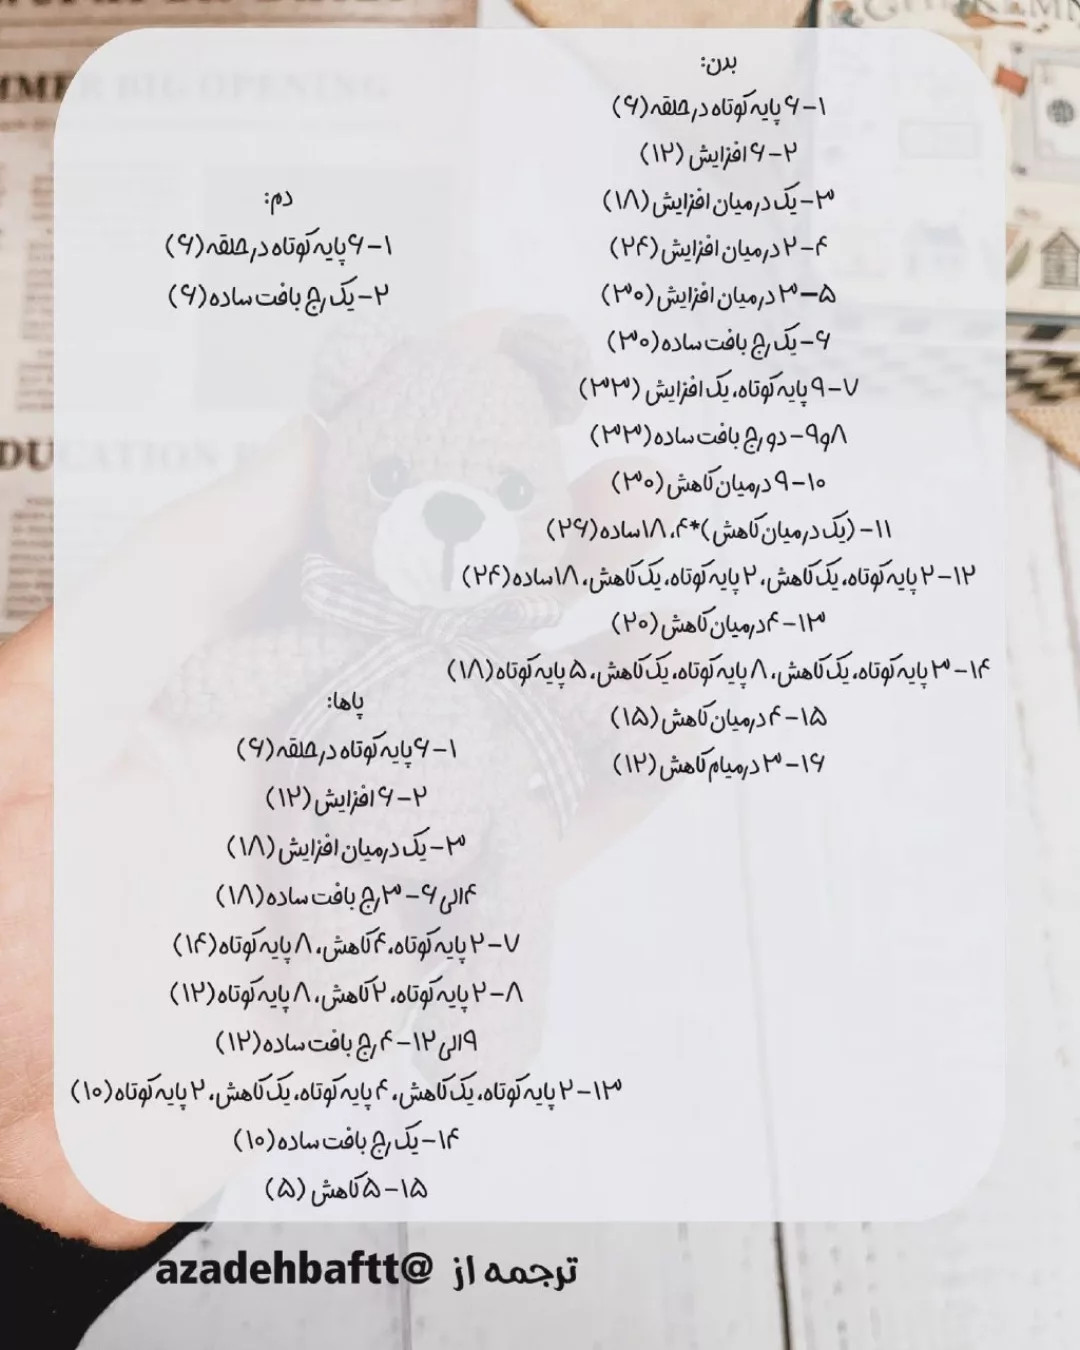 بدن:
۱-۶ پایه کوتاه در حلقه(۶)
۲-۶ افزایش (۱۲)
۳-یک در میان افزایش(۱۸)
۴-۲ در میان افزایش(۲۴)
۵-۳ در میان افزایش(۳۰)
۶-یک رج بافت ساده(۳۰)
۷-۹ پایه کوتاه، یک افزایش (۳۳)
۸و۹-دو رج بافت ساده(۳۳)
۱۰-۹ درمیان کاهش(۳۰)
۱۱-(یک در میان کاهش)*۴، ۱۸ساده(۲۶)
۱۲-۲ پایه کوتاه، یک کاهش، ۲ پایه کوتاه، یک کاهش، ۱۸ساده(۲۴)
۱۳-۴ درمیان کاهش(۲۰)
۱۴-۳ پایه کوتاه، یک کاهش، ۸ پایه کوتاه، یک کاهش، ۵ پایه کوتاه(۱۸)
۱۵-۴ درمیان کاهش(۱۵)
۱۶-۳ درمیام کاهش(۱۲)
دم:
۱-۶ پایه کوتاه در حلقه(۶)
۲-یک رج بافت ساده(۶)
پاها:
۱-۶ پایه کوتاه در حلقه(۶)
۲-۶ افزایش(۱۲)
۳-یک درمیان افزایش(۱۸)
۴الی ۶-۳ رج بافت ساده(۱۸)
۷-۲ پایه کوتاه، ۴ کاهش، ۸ پایه کوتاه(۱۴)
۸-۲ پایه کوتاه، ۲ کاهش، ۸ پایه کوتاه(۱۲)
۹الی ۱۲-۴ رج بافت ساده(۱۲)
۱۳-۲ پایه کوتاه، یک کاهش، ۴ پایه کوتاه، یک کاهش، ۲ پایه کوتاه(۱۰)
۱۴-یک رج بافت ساده(۱۰)
۱۵-۵ کاهش (۵)
ترجمه از @azadehbaftt